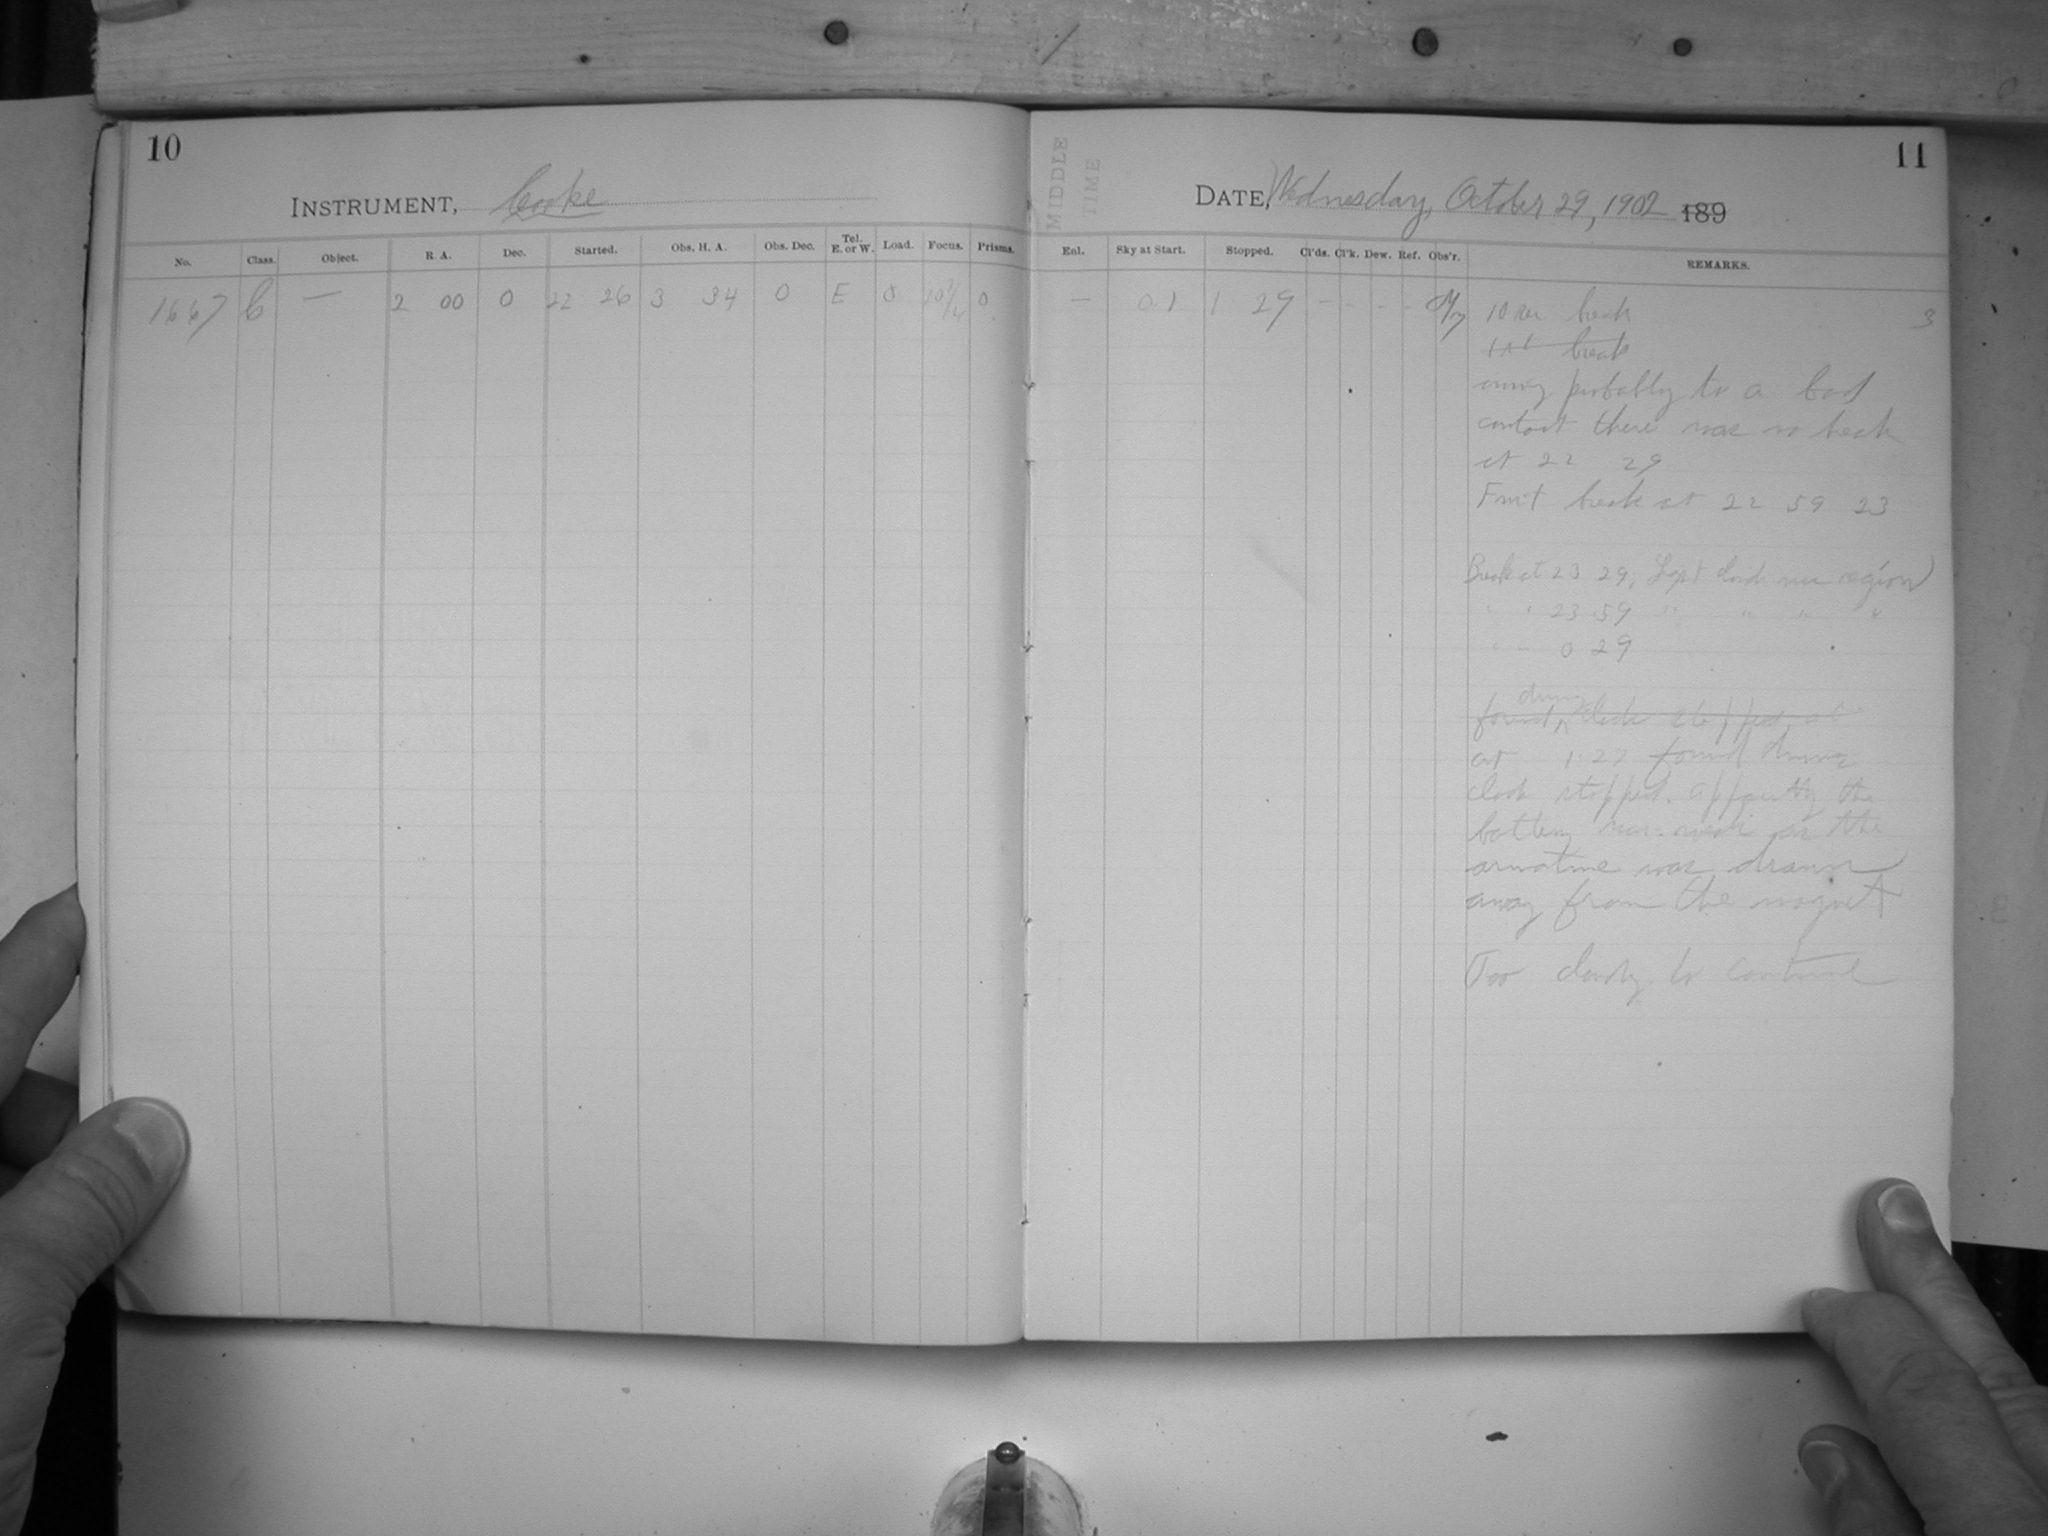 10
INSTRUMENT, Cooke
No. Class. Object. R. A. Dec. Started. Obs. H. A. Obs. Dec. Tel. E. or W. Load. Focus. Prisms.
1667 C — 2 00 0 22 26 3 34 0 E 0 0
MIDDLE
TIME
11
DATE, Wednesday, October 29, 1902 189
Enl. Sky at Start. Stopped. Cl'ds. Cl'k. Dew. Ref. Obs'r. REMARKS.
— 0.1 1 29 - - - - 10 sec break 3
break
owing probably to a bad
contact there was no break
at 22 29
First break at 22 59 23
Break at 23 29, Light clouds near region
" " 23 59 " " " "
" " 0 29
driving
found, clock stopped, at
at 1 27 found driving
clock stopped. apparently the
battery was weak as the
armature was drawn
away from the magnet
Too cloudy to continue